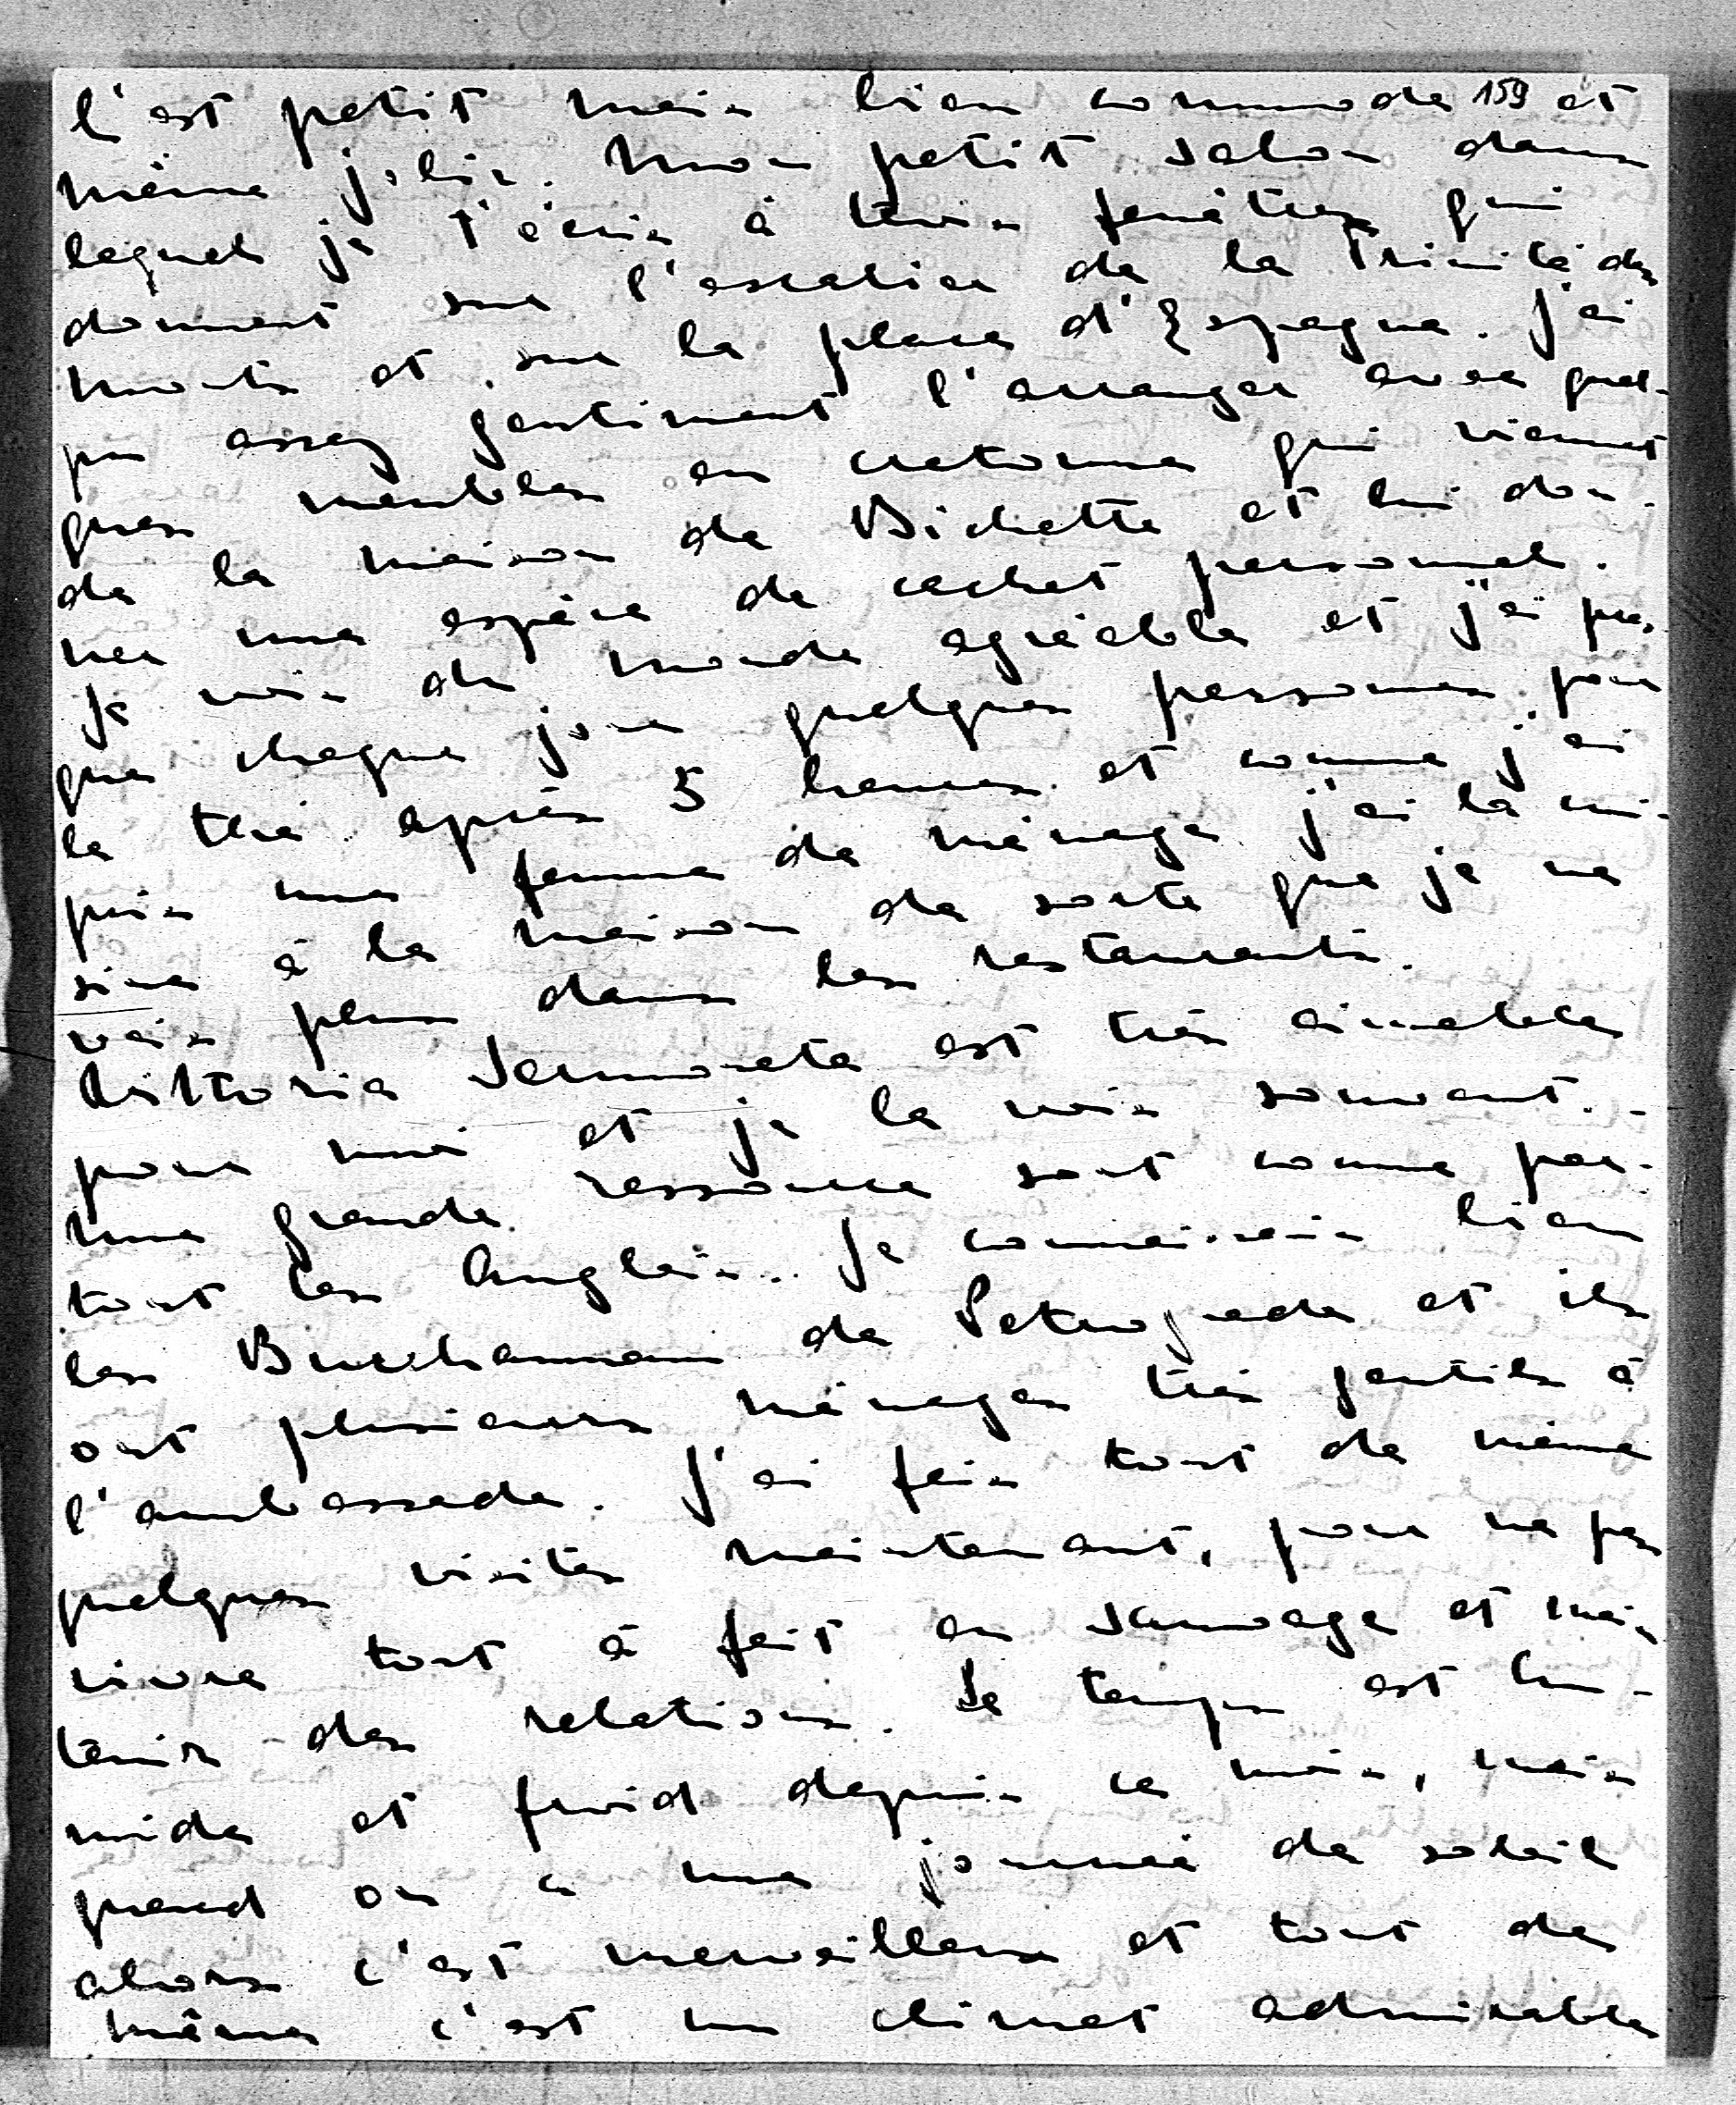 C'est petit mais bien commode 159 et
même joli. Mon petit salon dans
lequel je t'écris a trois fenêtres qui
donnent sur l'escalier de la Trinité des
Monts et sur la place d'Espagne. J'ai
pu assez gentiment l'arranger avec quel-
ques meubles en cretonne qui viennent
de la maison de Bichette et lui don-
ner une espèce de cachet personnel.
Je vois du monde agréable et j'ai pres-
que chaque jour quelques personnes pour
le thé après 5 heures et comme j'ai
pris une femme de ménage j'ai la cui-
sine à la maison de sorte que je ne
vais plus dans les restaurants.
Vittoria Sermoneta est très aimable
pour moi et je la vois souvent. -
Une grande ressource sont comme par-
tout les Anglais. Je connaissais bien
les Buchannan de Petrograde et ils
ont plusieurs ménages très gentils à
l'ambassade. J'ai fais tout de même
quelques visites maintenant, pour ne pas
vivre tout à fait en sauvage et main-
tenir des relations. Le temps est hu-
mide et froid depuis ce mois, mais
quand on a une journée de soleil
alors c'est merveilleux et tout de
même c'est un climat admirable